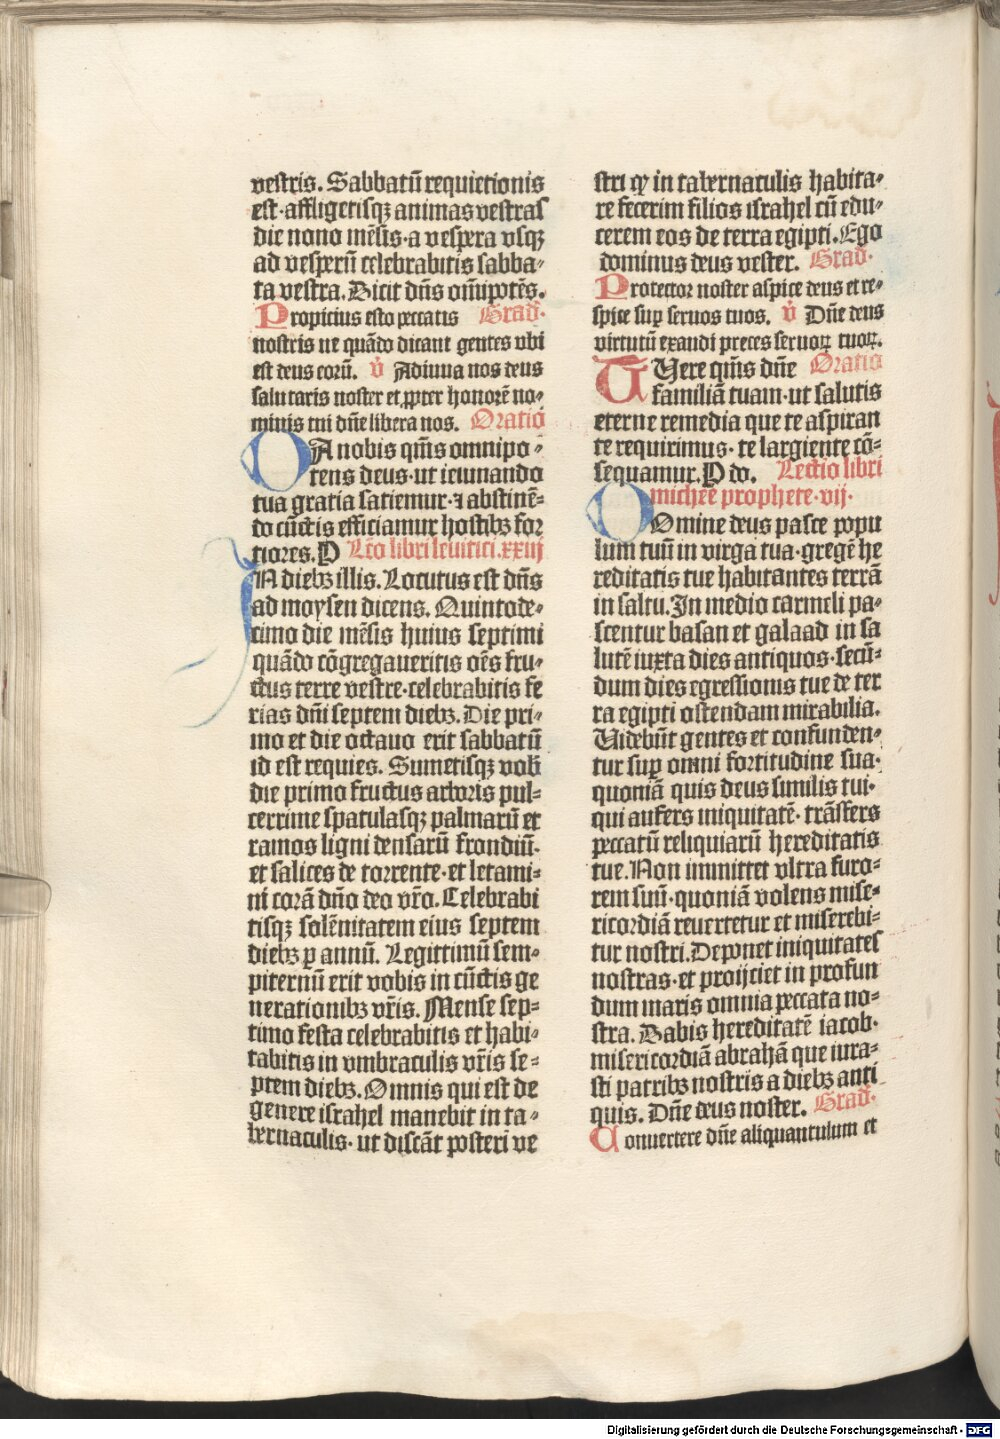 vestris. Sabbatū requietionis
est·affligetisqꝫ animas vestras
die nono mēsis·a vespera vsqꝫ
ad vesperū celebrabitis sabba⸗
ta vestra. Dicit dn̄s om̄ipotēs.
Propicius esto peccatis Grad̄·
nostris ne quādo dicant gentes vbi
est deus eorū. v̄ Adiuua nos deus
salutaris noster et ꝓpter honorē no⸗
minis tui dn̄e libera nos. Oratio
DA nobis qm̄s omnipo⸗
tens deus·ut ieiunando
tua gratia satiemur·⁊ abstinē⸗
do cūctis efficiamur hostibꝫ for
tiores. P Lc̄o libri leuitici.xxiij
IN diebꝫ illis. Locutus est dn̄s
ad moysen dicens. Quintode⸗
cimo die mēsis huius septimi
quādo cōgregaueritis oēs fru⸗
ctus terre vestre·celebrabitis fe
rias dn̄i septem diebꝫ. Die pri⸗
mo et die octauo erit sabbatū
id est requies. Sumetisqꝫ vob̄
die primo fructus arboris pul⸗
cerrime spatulasqꝫ palmarū et
ramos ligni densarū frondiū·
et salices de torrente·et letami⸗
ni corā dn̄o deo vr̄o. Celebrabi
tisqꝫ solēnitatem eius septem
diebꝫ ꝑ annū. Legittimū sem⸗
piternū erit vobis in cūctis ge
nerationibꝫ vr̄is. Mense sep⸗
timo festa celebrabitis et habi⸗
tabitis in vmbraculis vr̄is se⸗
ptem diebꝫ. Omnis qui est de
genere israhel manebit in ta⸗
bernaculis· ut discāt posteri ve
stri ꝙ in tabernaculis habita⸗
re fecerim filios israhel cū edu⸗
cerem eos de terra egipti. Ego
dominus deus vester. Grad̄·
Protector noster aspice deus et re⸗
spice suꝑ seruos tuos. v̄ Dn̄e deus
virtutū exaudi preces seruoꝝ tuoꝝ.
TUere qm̄s dn̄e Oratio
familiā tuam·ut salutis
eterne remedia que te aspiran
te requirimus· te largiente cō⸗
sequamur. P do. Lectio libri
michee prophete·vij·
DOmine deus pasce popu
lum tuū in virga tua·gregē he
reditatis tue habitantes terrā
in saltu. In medio carmeli pa⸗
scentur basan et galaad in sa
lutē iuxta dies antiquos·secū⸗
dum dies egressionis tue de ter
ra egipti ostendam mirabilia.
Videbūt gentes et confunden⸗
tur suꝑ omni fortitudine sua·
quoniā quis deus similis tui·
qui aufers iniquitatē· trāsfers
peccatū reliquiarū hereditatis
tue. Non immittet vltra furo⸗
rem suū·quoniā volens mise⸗
ricordiā reuertetur et miserebi⸗
tur nostri. Deponet iniquitates
nostras·et proijciet in profun
dum maris omnia peccata no⸗
stra. Dabis hereditatē iacob·
misericordiā abrahā que iura⸗
sti patribꝫ nostris a diebꝫ anti
quis. Dn̄e deus noster. Grad̄·
Conuertere dn̄e aliquantulum et
Digitalisierung gefördert durch die Deutsche Forschungsgemeinschaft - DFG